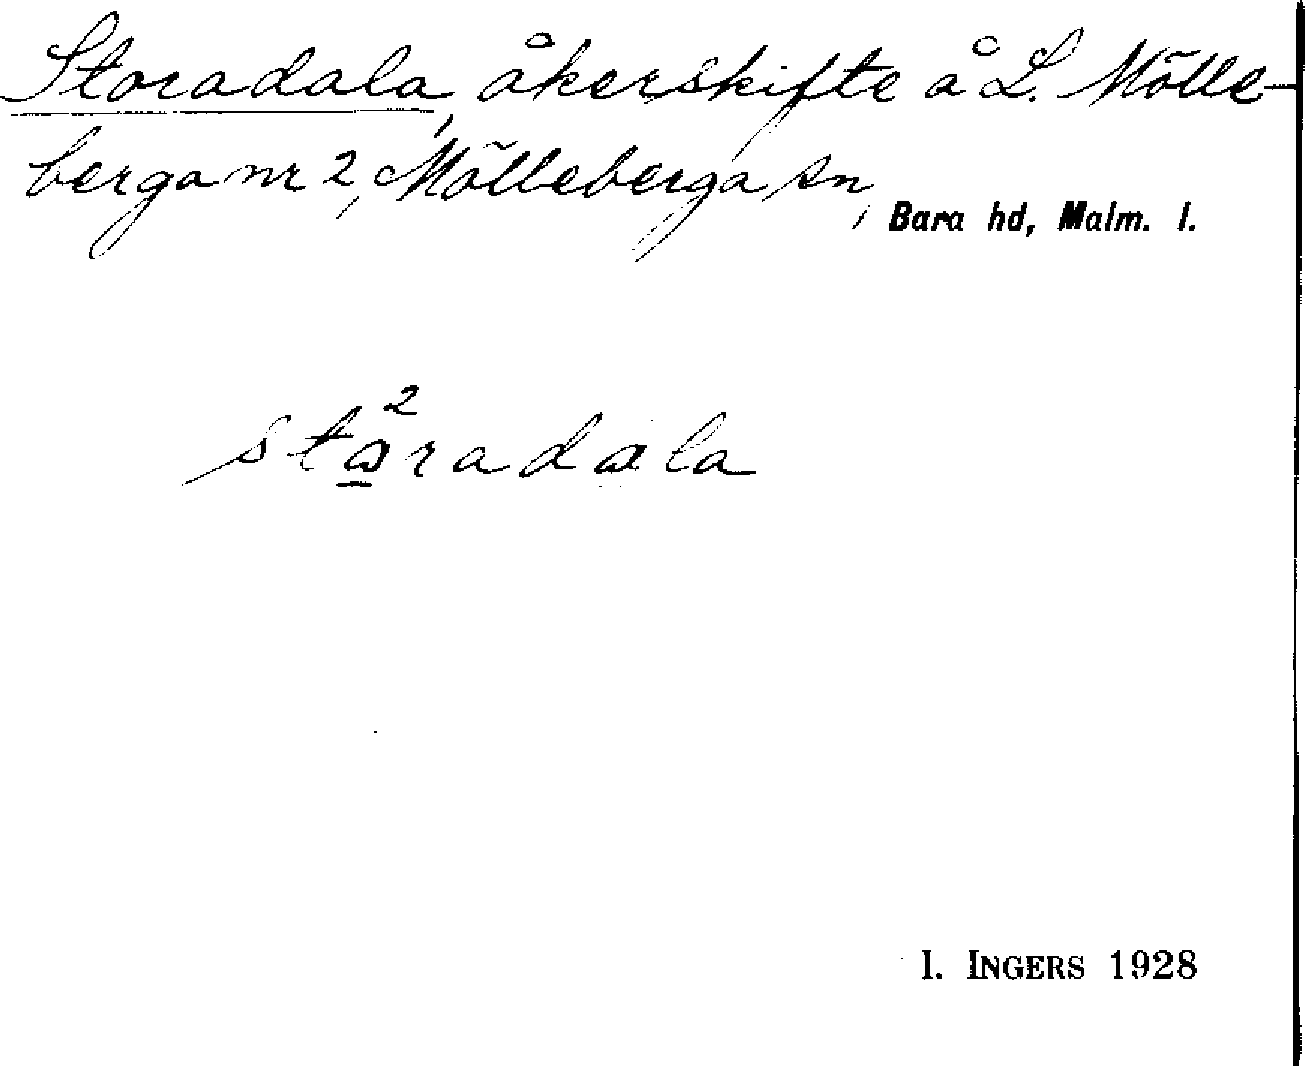 Storadala, åkerskifte å L. Mölle-
berga nr 2, Mölleberga sn,
Bara hd, Malm. l.
2
storadala
I. INGERS 1928